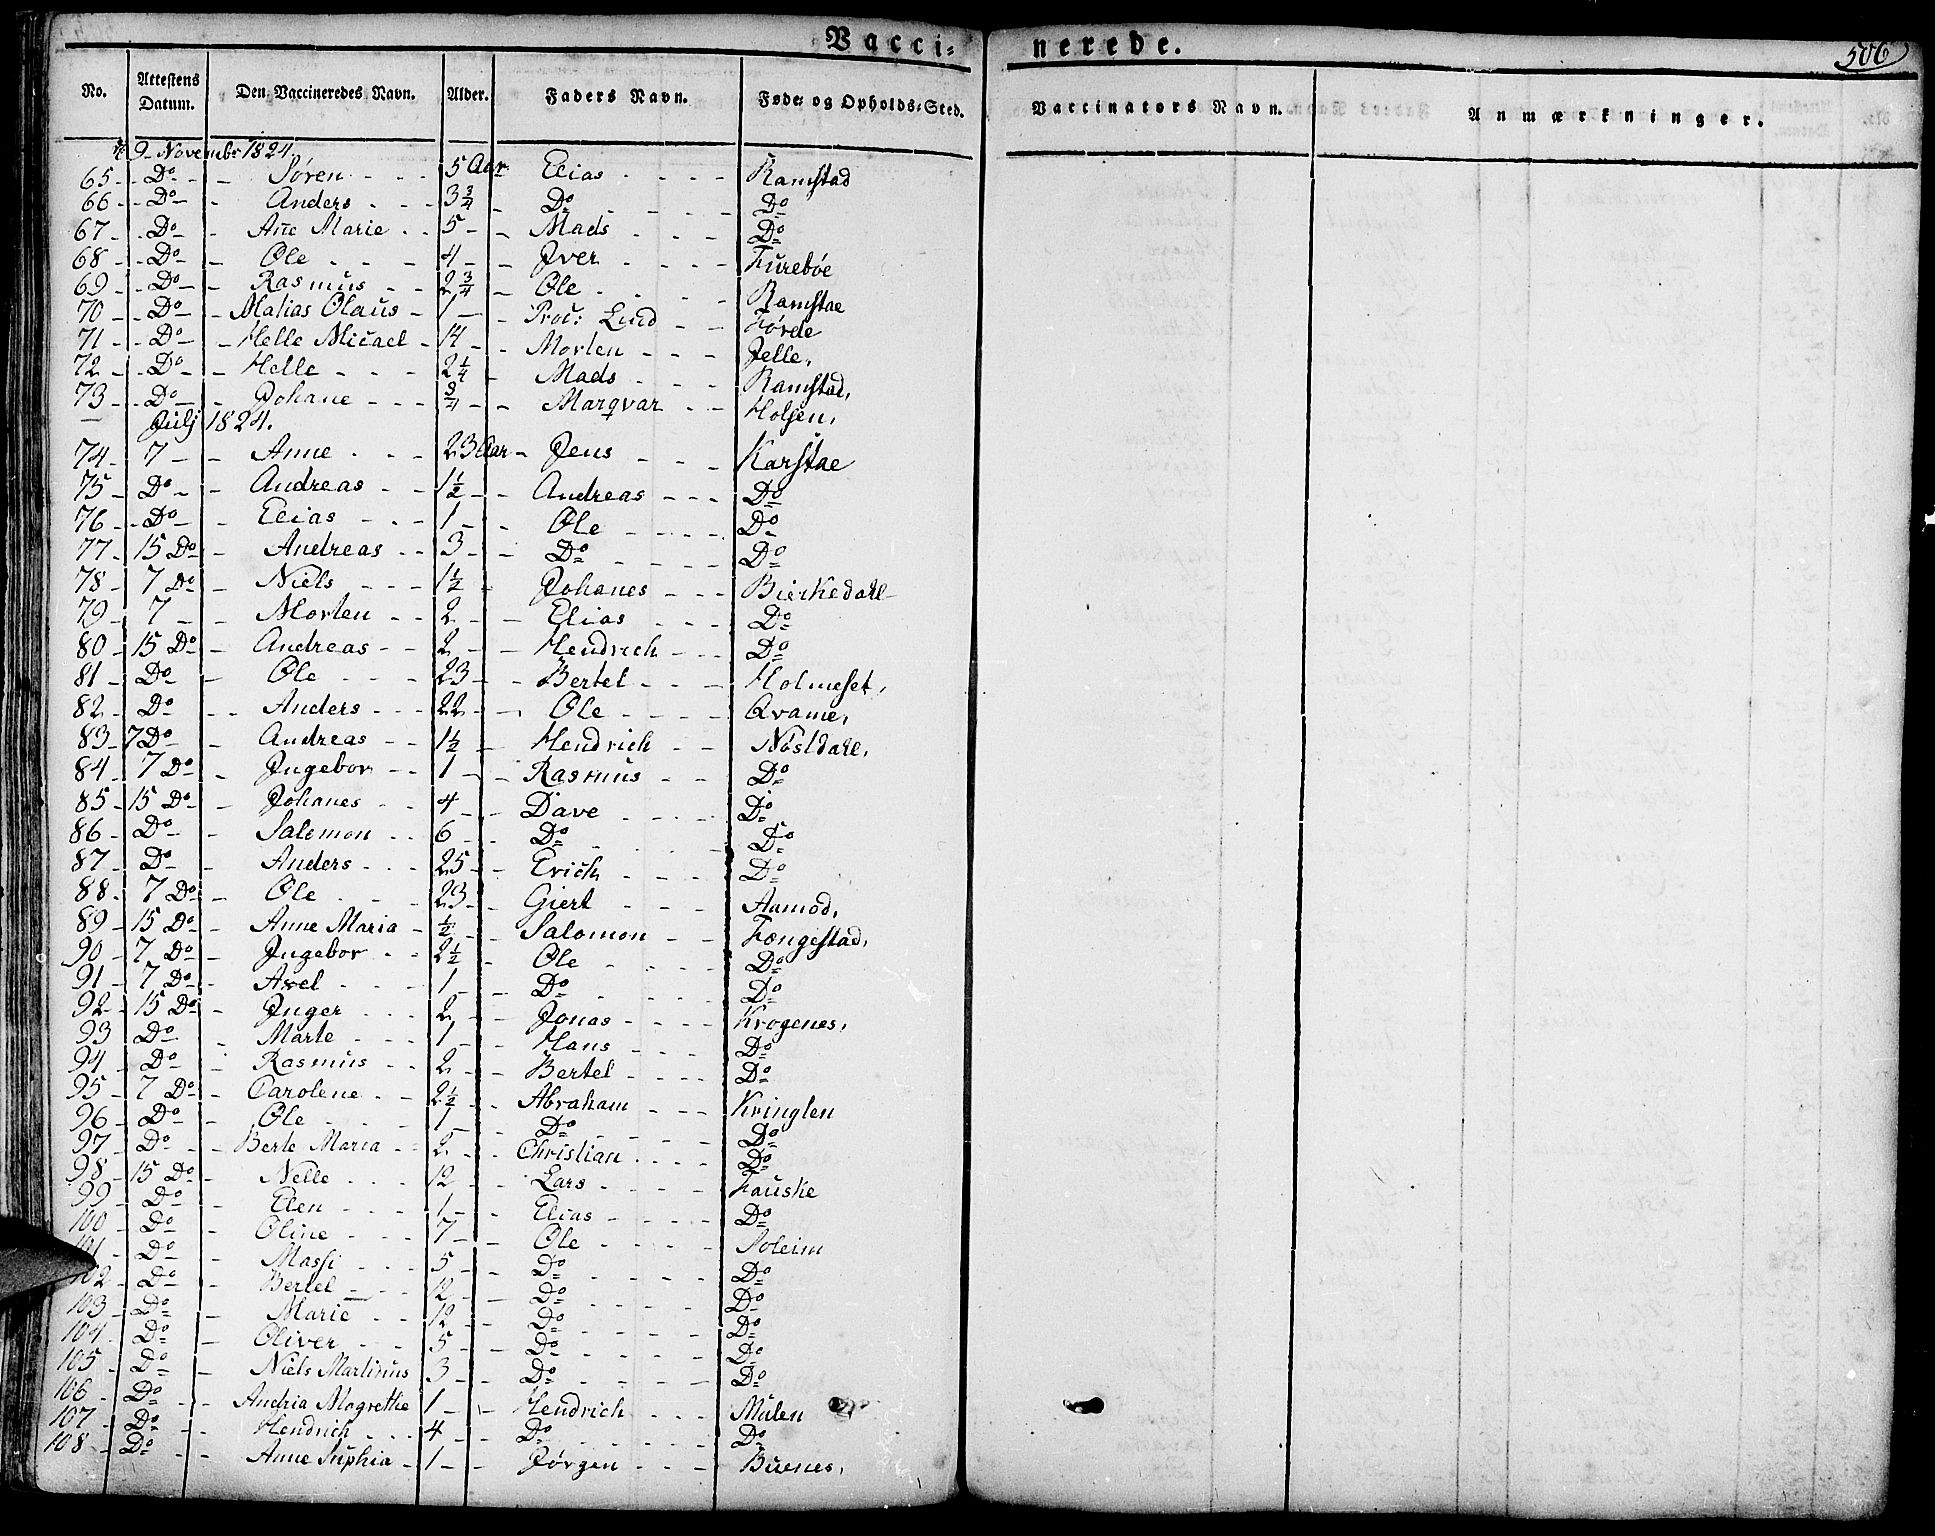 Vacci= nerede. 506
No. Attestens Datum. Den Vaccineredes Navn. Alder. Faders Navn. Føde= og Opholds=Sted. Vaccinators Navn. Anmærkninger.
9 Novembr 1824.
65 Do Søren 5 Aar Elias Ramstad
66 Do Anders 3 3/4 Do Do
67 Do Añe Marie 5 Mads Do
68 Do Ole 4 Iver Furebøe
69 Do Rasmus 2 3/4 Ole Ramstae
70 Do Matias Olaus 1 Proc: Lund Førde
71 Do Helle Micael 14 Morten Jelle,
72 Do Helle 2 1/4 Mads Ramstad,
73 Do Johane 3/4 Marqvar Holsen,
Julj 1824.
74 7 Anne 23 Aar Jens Karstae
75 Do Andreas 1 1/2 Andreas Do
76 Do Elias 1 Ole Do
77 15 Do Andreas 3 Do Do
78 7 Do Niels 1 1/2 Johanes Bierkedahl
79 7 Morten 2 Elias Do
80 15 Do Andreas 2 Hendrich Do
81 Do Ole 23 Bertel Holmeset,
82 Do Anders 22 Ole Qvame,
83 7 Do Andreas 1 1/2 Hendrich Nøsldahl,
84 7 Do Ingebor 1 Rasmus Do
85 15 Do Johanes 4 Dave Do
86 Do Salomon 6 Do Do
87 Do Anders 25 Erich Do
88 7 Do Ole 23 Giert Aamod,
89 15 Do Anne Maria 1/2 Salomon Fængestad,
90 7 Do Ingebor 2 1/2 Ole Do
91 7 Do Axel 1 Do Do
92 15 Do Inger 2 Jonas Krogenes,
93 Do Marte 1 Hans Do
94 Do Rasmus 2 Bertel Do
95 7 Do Carolene 2 1/2 Abraham Kringlen
96 Do Ole 1 Do Do
97 Do Berte Maria 2 Christian Do
98 15 Do Nelle 12 Lars Fauske
99 Do Elen 1 Elias Do
100 Do Oline 7 Ole Soleim
101 Do Massi 5 Do Do
102 Do Bertel 12 Do Do
103 Do Marie 12 Do Do
104 Do Oliver 5 Do Do
105 Do Niels Martinus 3 Do Do
106 Do Andria Magrethe 1 Hendrich Mulen
107 Do Hendrich 4 Do Do
108 Do Anne Suphia 1 Jørgen Buenes,